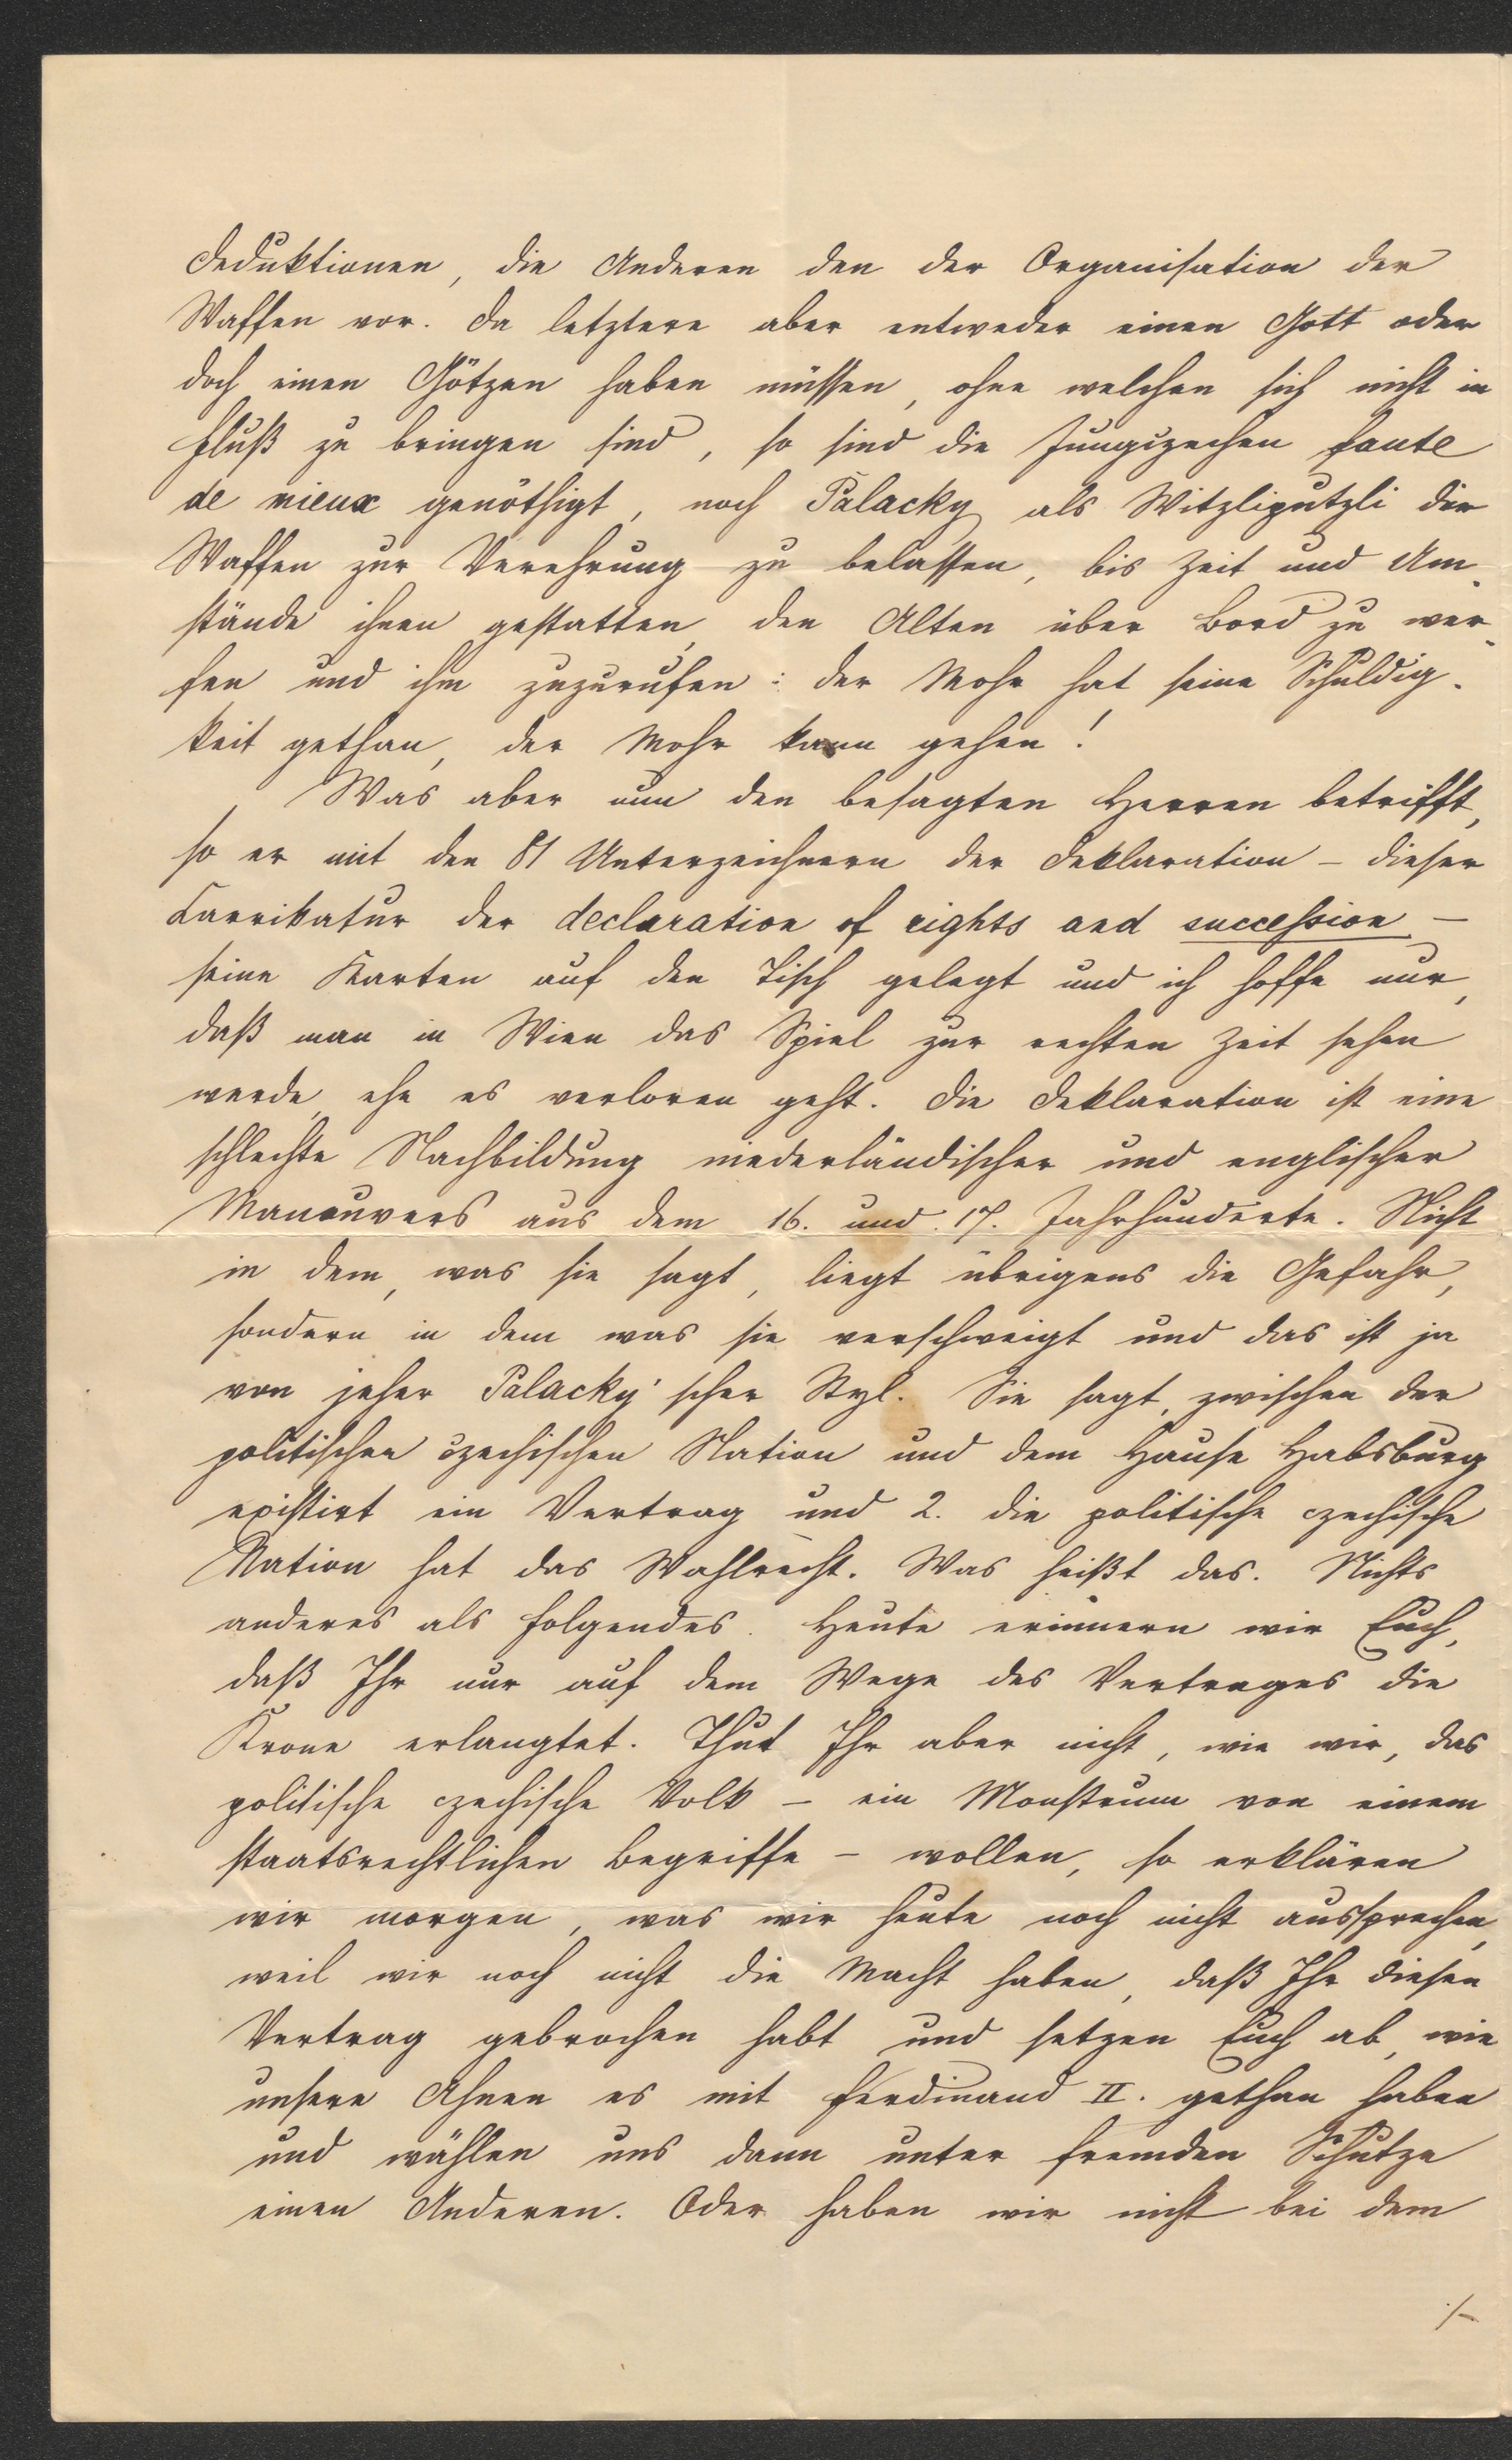 Deduktionen, die Anderen den der Organisation der
Massen vor. Da letztere aber entweder einen Gott oder
doch einen Götzen haben müssen, ohne welchen sich nicht in
Fluß zu bringen sind, so sind die Jungczechen faute
de mieux genöthigt, noch Palacky als Witzliputzli der
Massen zur Verehrung zu belassen, bis Zeit und Um-
stände ihnen gestatten, den Alten über Bord zu wer-
fen und ihm zuzurufen: der Mohr hat seine Schuldig-
keit gethan, der Mohr kann gehen!
Was aber nun den besagten Herren betrifft,
so er mit den 81 Unterzeichnern der Deklaration – dieser
Karrikatur der declaration of rights and succession –
seine Karten auf den Tisch gelegt und ich hoffe nur,
daß man in Wien das Spiel zur rechten Zeit sehen
werde, ehe es verloren geht. Die Deklaration ist eine
schlechte Nachbildung niederländischer und englischer
Manouvers aus dem 16. und 17. Jahrhunderte. Nicht
in dem, was sie sagt, liegt übrigens die Gefahr,
sondern in dem was sie verschweigt und das ist ja
von jeher Palacky'scher Styl. Sie sagt, zwischen der
politischen czechischen Nation und dem Hause Habsburg
existirt ein Vertrag und 2. die politische czechische
Nation hat das Wahlrecht. Was heißt das. Nichts
anderes als folgendes. Heute erinnern wir Euch,
daß Ihr nur auf dem Wege des Vertrages die
Krone erlangtet. Thut Ihr aber nicht, wie wir, das
politische czechische Volk – ein Monstrum von einem
staatsrechtlichen Begriffe – wollen, so erklären
wir morgen, was wir heute noch nicht aussprechen,
weil wir noch nicht die Macht haben, daß Ihr diesen
Vertrag gebrochen habt und setzen Euch ab, wie
unsere Ahnen es mit Ferdinand II. gethan haben
und wählen uns dann unter fremden Schutze
einen Anderen. Oder haben wir nicht bei dem
./-